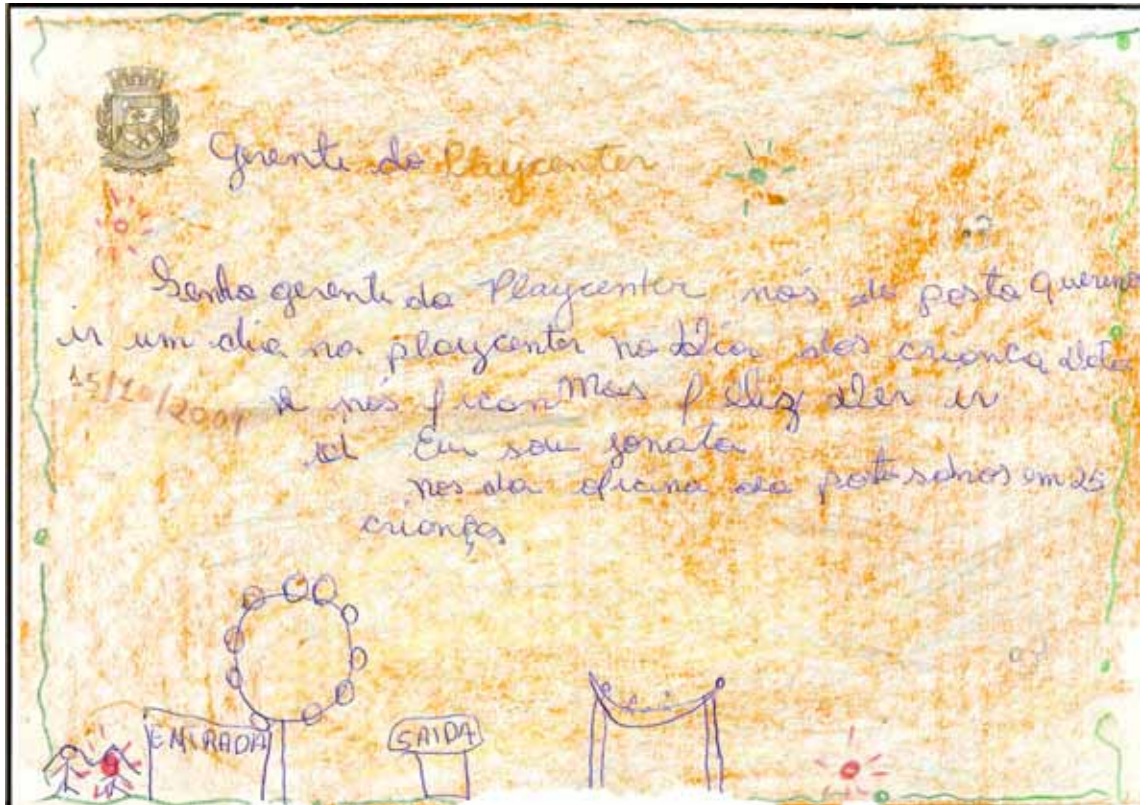 Gerente do Playcenter
Senho gerente da Playcenter nós do posto queremo
ir um dia no playcenter no dia das crianca
15/10/2001
nós ficon mas feliz ir
Eu sou Jonata
nos da oficina da somos em 25
criança
EMIRADA
SAIDA